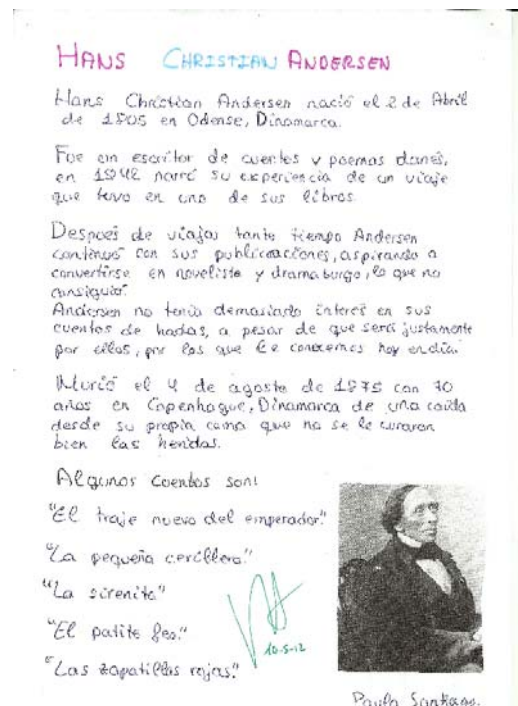 HANS CHRISTIAN ANDERSEN
Hans Christian Andersen nació el 2 de Abril
de 1805 en Odense, Dinamarca.
Fue un escritor de cuentos y poemas danés,
en 1842 narró su experiencia de un viaje
que tuvo en uno de sus libros.
Después de viajar tanto tiempo Andersen
continuó con sus publicaciones, aspirando a
convertirse en novelista y dramaturgo, lo que no
consiguió.
Andersen no tenía demasiado interés en sus
cuentos de hadas, a pesar de que será justamente
por ellos, por los que le conocemos hoy en día.
Murió el 4 de agosto de 1875 con 70
años en Copenhague, Dinamarca de una caída
desde su propia cama que no se le curaron
bien las heridas.
Algunos cuentos son:
"El traje nuevo del emperador."
"La pequeña cerillera."
"La sirenita"
"El patito feo."
"Las zapatillas rojas."
10-5-12
Paula Santiago.